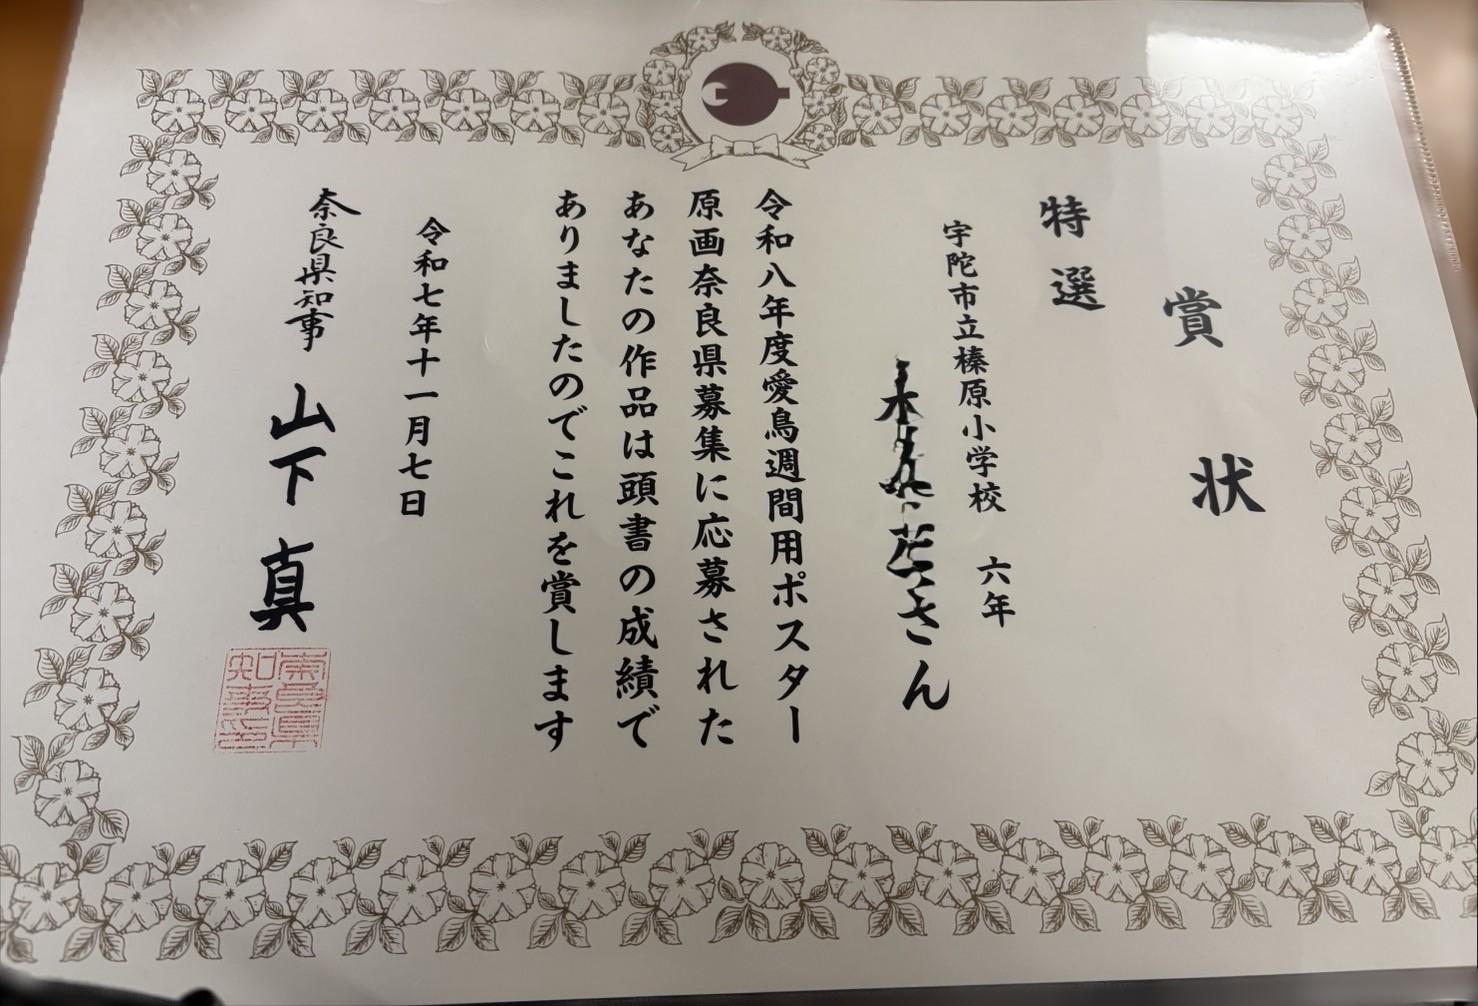 賞状
特選
宇陀市立榛原小学校 六年
さん
令和八年度愛鳥週間用ポスター
原画奈良県募集に応募された
あなたの作品は頭書の成績で
ありましたのでこれを賞します
令和七年十一月七日
奈良県知事 山下真